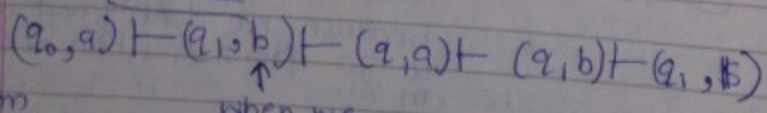 (q₀,a) ⊢ (q₁,b) ⊢ (q,a) ⊢ (q,b) ⊢ (q₁,)
↑
m when we